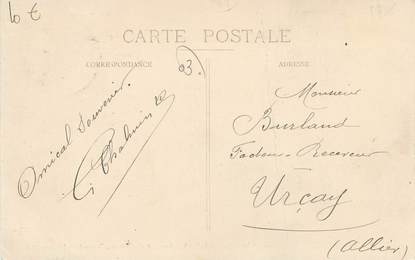 10 €
CARTE POSTALE
CORRESPONDANCE
03.
ADRESSE
Amical Souvenir
Monsieur
Burland
Facteur-Receveur
Urçay
(Allier)